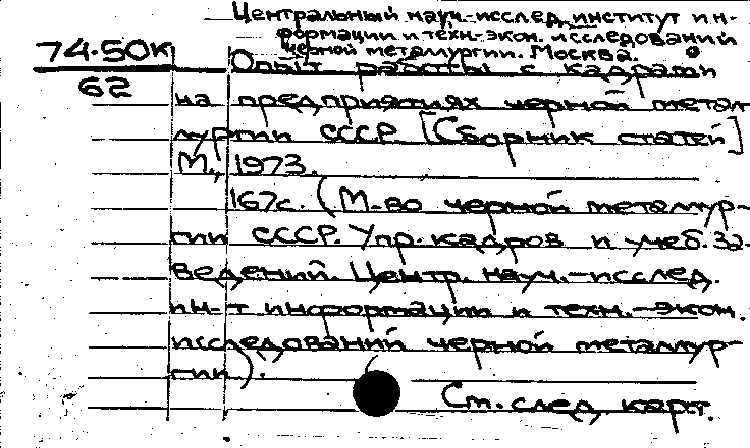 Центральный науч.-исслед. институт ин-
формации и техн.-экон. исследований
черной металлургии. Москва.
74.50к
62
Опыт работы с кадрами
на предприятиях черной метал
лургии СССР. [Сборник статей]
М., 1973.
167с. (М-во черной металлур-
гии СССР. Упр. кадров и учеб. за-
ведений. Центр. науч.-исслед.
ин-т информации и техн.-экон.
исследований черной металлур-
гии).
См. след. карт.